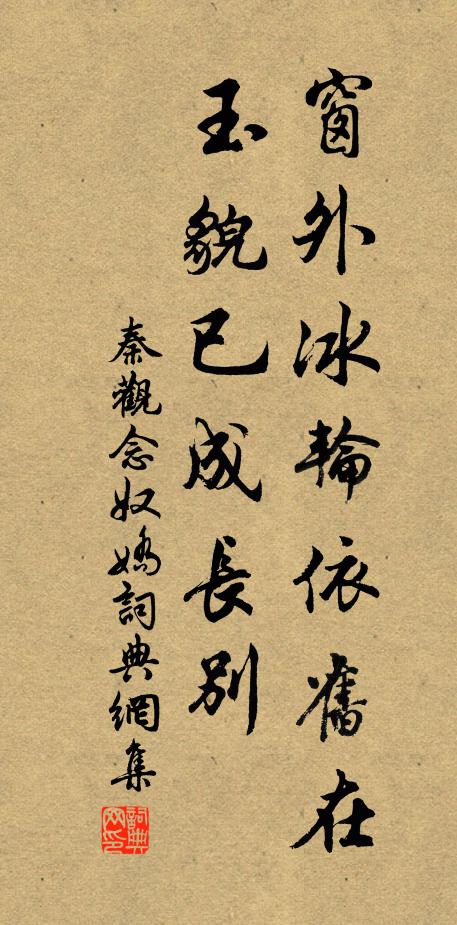 窗外冰輪依舊在
玉貌已成長別
秦觀念奴嬌詞典網集
詞典网印